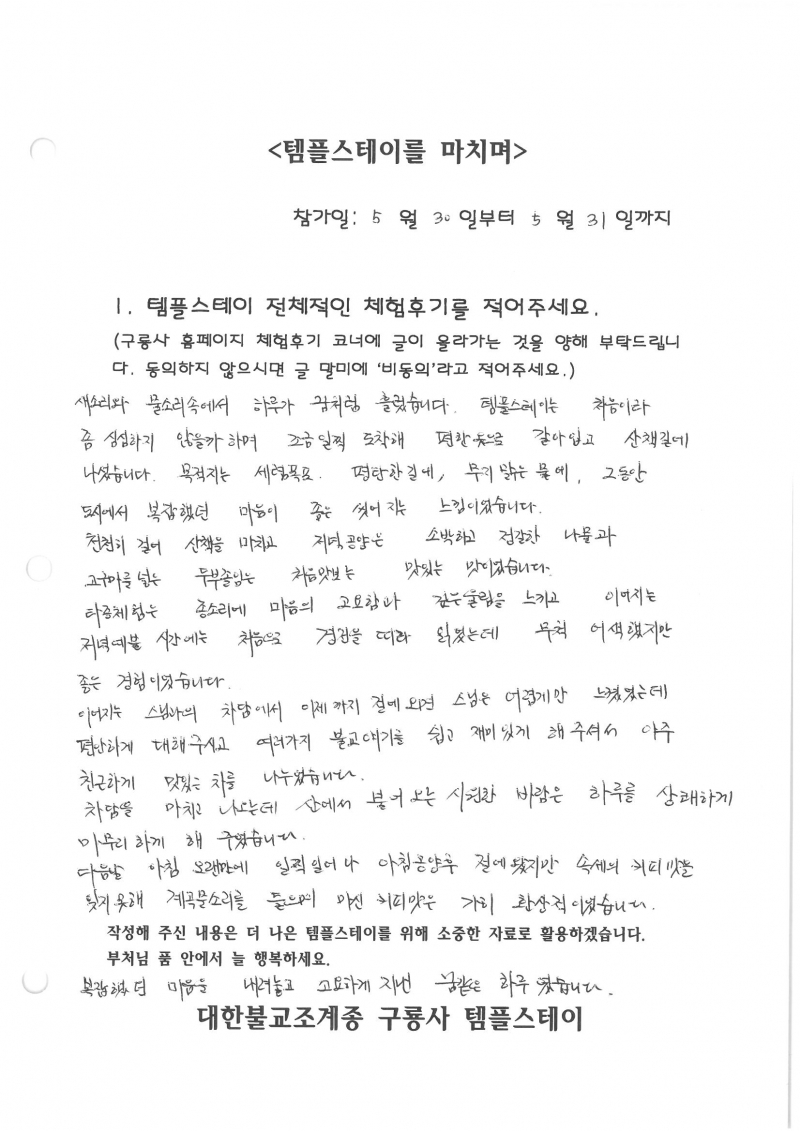 <템플스테이를 마치며>
참가일: 5 월 30 일부터 5 월 31 일까지
1. 템플스테이 전체적인 체험후기를 적어주세요.
(구룡사 홈페이지 체험후기 코너에 글이 올라가는 것을 양해 부탁드립니
다. 동의하지 않으시면 글 말미에 '비동의'라고 적어주세요.)
새소리와 물소리속에서 하루가 꿈처럼 흘렀습니다. 템플스테이는 처음이라
좀 심심하지 않을까 하며 조금 일찍 도착해 편한 옷으로 갈아입고 산책길에
나섰습니다. 목적지는 세렴폭포. 평탄한 길에, 무지 맑은 물에, 그동안
도시에서 복잡했던 마음이 씻어지는 느낌이었습니다.
천천히 걸어 산책을 마치고 저녁공양은 소박하고 정갈한 나물과
고구마를 넣은 두부졸임는 처음맛보는 맛있는 맛이었습니다.
타종체험는 종소리에 마음의 고요함과 깊은울림을 느끼고 이어지는
저녁예불 시간에는 처음으로 경전을 따라 읽었는데 무척 어색했지만
좋은 경험이었습니다.
이어지는 스님과의 차담에서 이제까지 절에오면 스님은 어렵게만 느꼈었는데
편안하게 대해주시고 여러가지 불교얘기를 쉽고 재미있게 해주셔서 아주
친근하게 맛있는 차를 나누었습니다.
차담을 마치고 나오는데 산에서 불어오는 시원한 바람은 하루를 상쾌하게
마무리하게 해 주었습니다.
다음날 아침 오랜만에 일찍일어나 아침공양후 절에왔지만 속세의 커피맛을
잊지못해 계곡물소리를 들으며 마신 커피맛은 가히 환상적이었습니다.
작성해 주신 내용은 더 나은 템플스테이를 위해 소중한 자료로 활용하겠습니다.
부처님 품 안에서 늘 행복하세요.
복잡했던 마음을 내려놓고 고요하게 지낸 꿈같은 하루였습니다.
대한불교조계종 구룡사 템플스테이